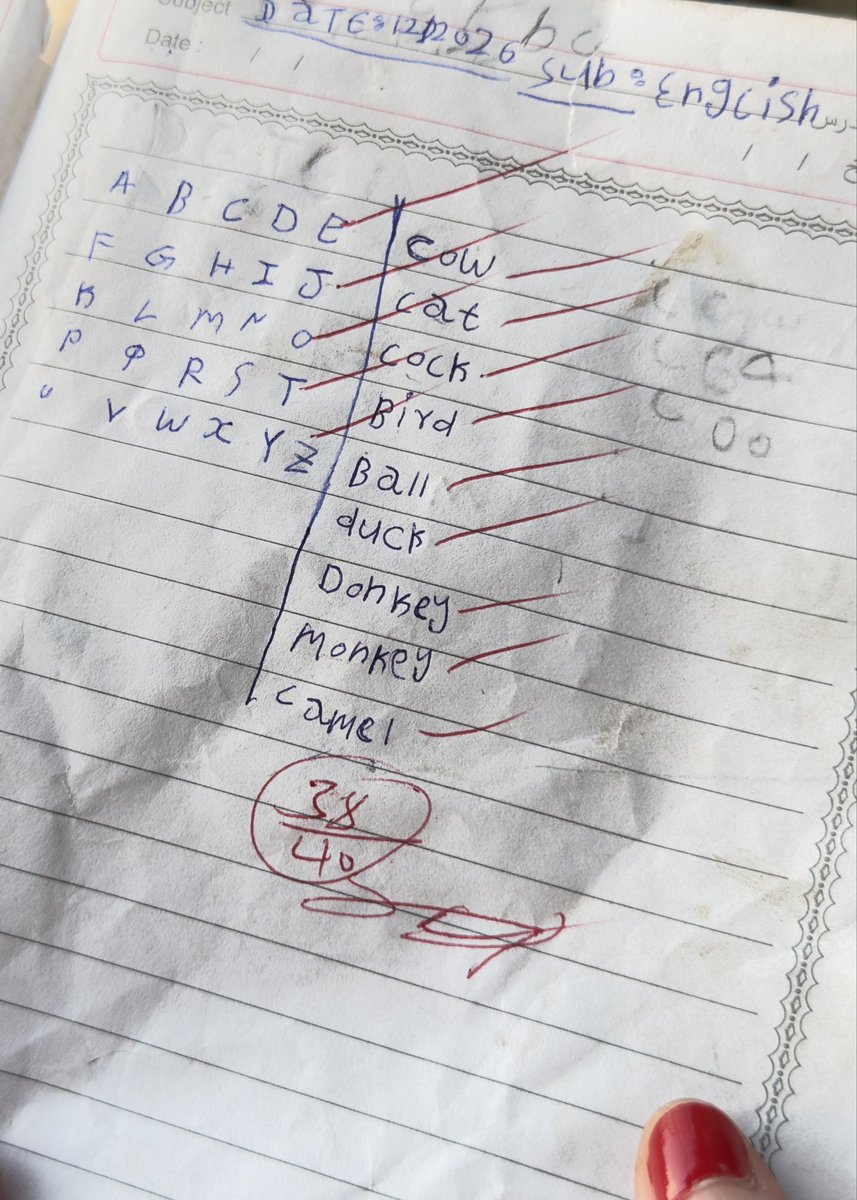 Subject DATE:12/2026 bc
Date: / / Sub: English
A B C D E
F G H I J
K L M N O
P Q R S T
U V W X Y Z
Cow
cat
cock
Bird
Ball
duck
Donkey
Monkey
Camel
38
40